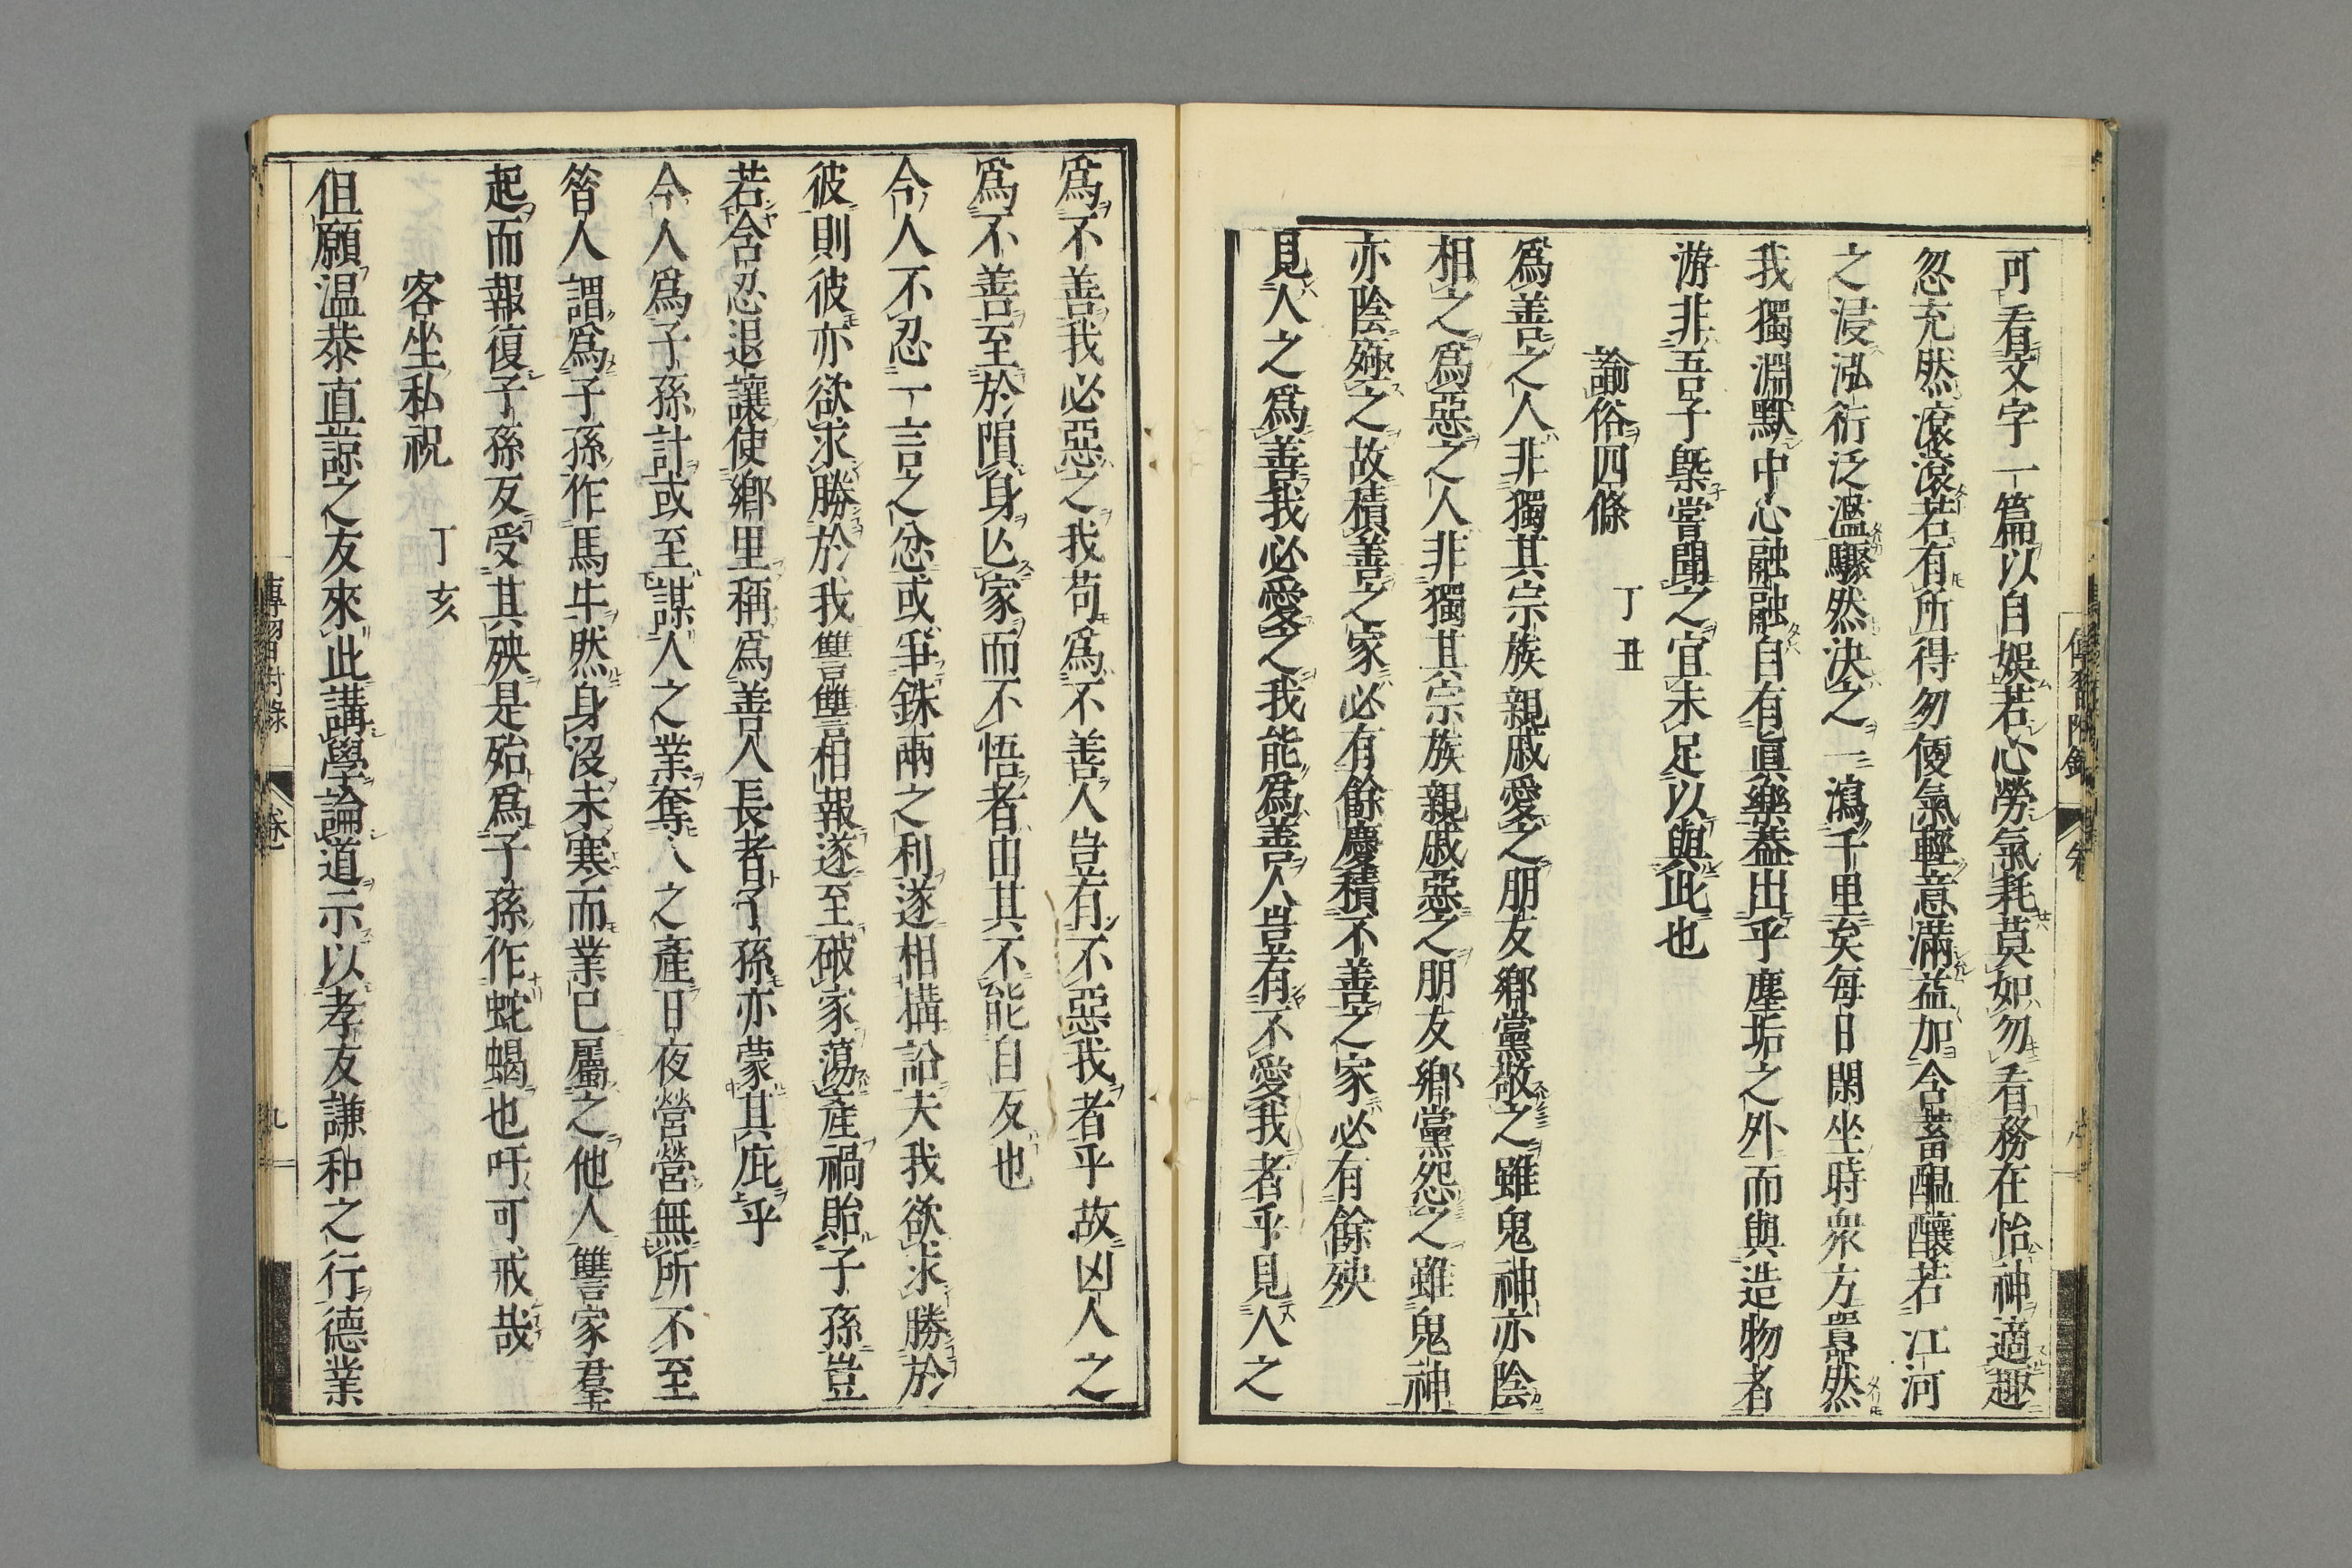 可看文字一篇以自娯若心勞氣耗莫如勿看務在怡神適趣
忽充然滾滾若有所得勿便氣輕意滿益加含蓄醞釀若江河
之浸泓衍泛濫驟然決之一瀉千里矣每日閑坐時衆方嚣然
我獨淵默中心融融自有眞樂葢出乎塵垢之外而與造物者
游非吾子槩嘗聞之宜未足以與此也
諭俗四條　丁丑
爲善之人非獨其宗族親戚愛之朋友鄉黨敬之雖鬼神亦陰
相之爲惡之人非獨其宗族親戚惡之朋友鄉黨怨之雖鬼神
亦陰殛之故積善之家必有餘慶積不善之家必有餘殃
見人之爲善我必愛之我能爲善人豈有不愛我者乎見人之
爲不善我必惡之我苟爲不善人豈有不惡我者乎故凶人之
爲不善至於隕身亾家而不悟者由其不能自反也
今人不忍一言之忿或爭銖兩之利遂相構訟夫我欲求勝於
彼則彼亦欲求勝於我讐讐相報遂至破家蕩產禍貽子孫豈
若含忍退讓使鄉里稱爲善人長者子孫亦蒙其庇乎
今人爲子孫計或至謀人之業奪人之產日夜營營無所不至
昝人謂爲子孫作馬牛然身沒未寒而業已屬之他人讐家羣
起而報復子孫反受其殃是殆爲子孫作蛇蝎也吁可戒哉
客坐私祝　丁亥
但願温恭直諒之友來此講學論道示以孝友謙和之行德業
傳習附錄　卷
傳習附錄　卷　九